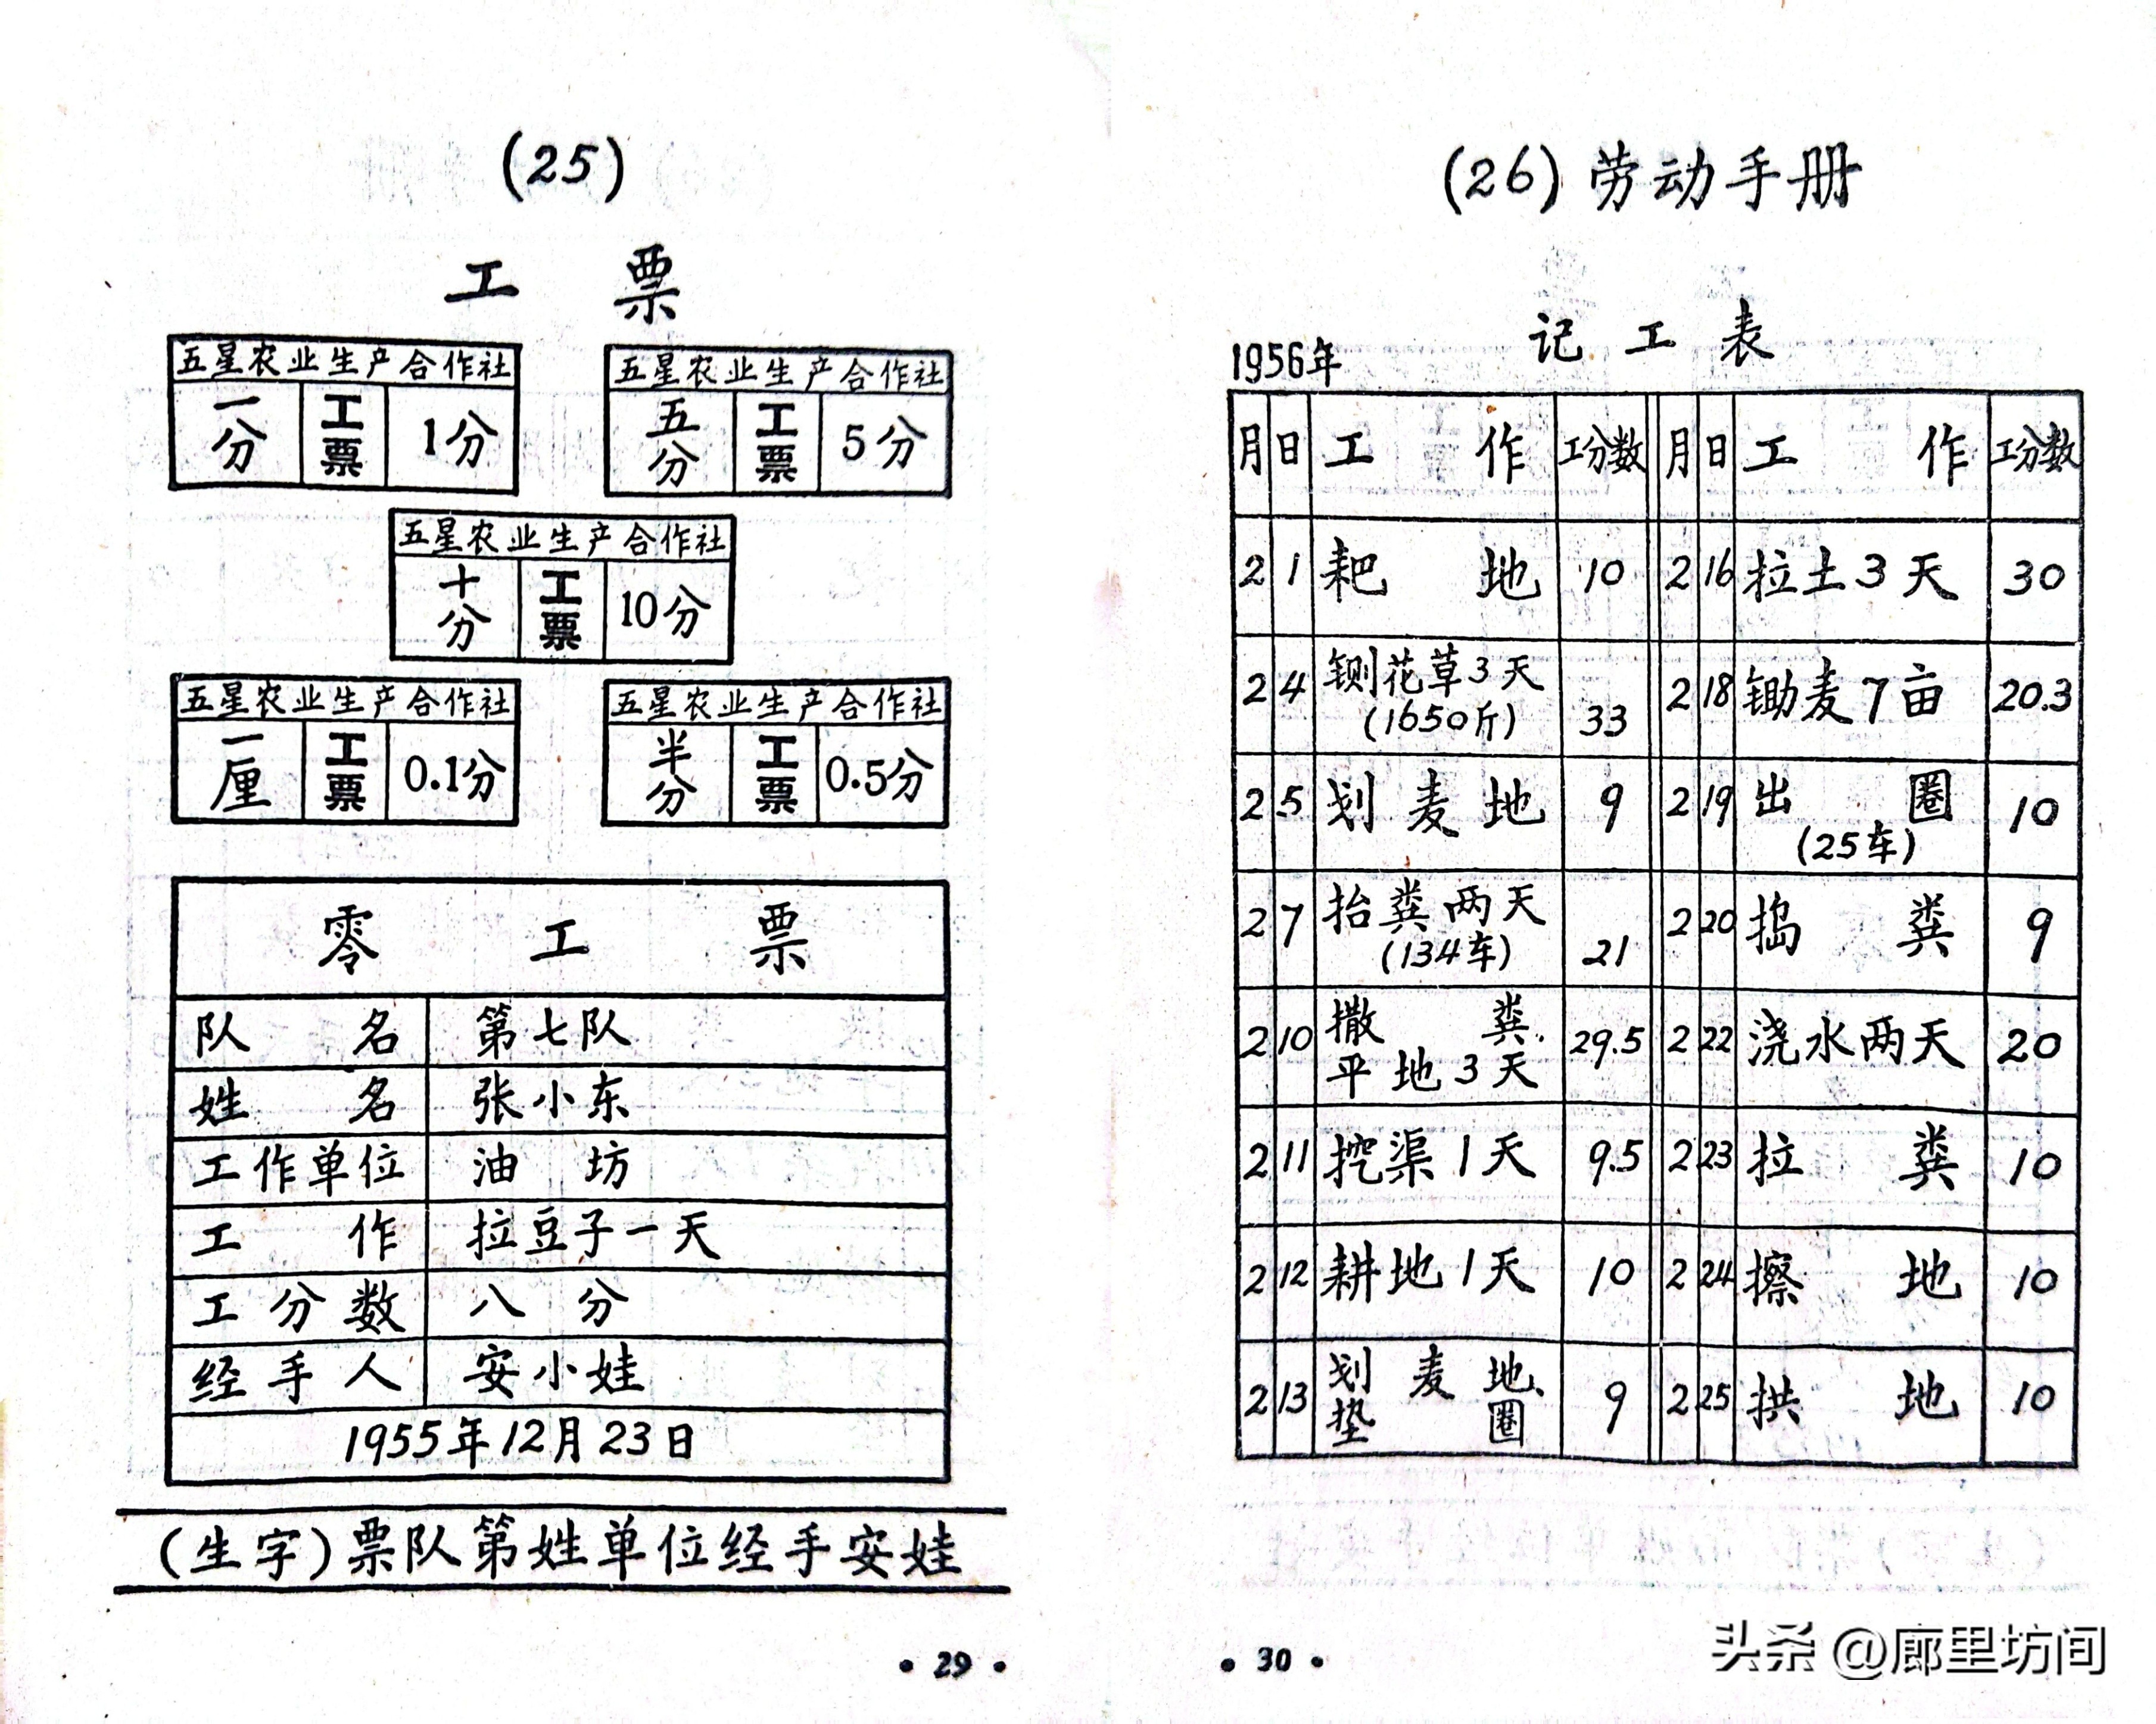 (25)
工 票
五星农业生产合作社
一分 工票 1分
五星农业生产合作社
五分 工票 5分
五星农业生产合作社
十分 工票 10分
五星农业生产合作社
一厘 工票 0.1分
五星农业生产合作社
半分 工票 0.5分
零 工 票
队名 第七队
姓名 张小东
工作单位 油坊
工作 拉豆子一天
工分数 八分
经手人 安小娃
1955年12月23日
(生字)票队第姓单位经手安娃
• 29 •
(26) 劳动手册
记工表
1956年
月 日 工作 工分数 月 日 工作 工分数
2 1 耙地 10 2 16 拉土3天 30
2 4 铡花草3天(1650斤) 33 2 18 锄麦7亩 20.3
2 5 划麦地 9 2 19 出圈(25车) 10
2 7 抬粪两天(134车) 21 2 20 捣粪 9
2 10 撒粪、平地3天 29.5 2 22 浇水两天 20
2 11 挖渠1天 9.5 2 23 拉粪 10
2 12 耕地1天 10 2 24 擦地 10
2 13 划麦地、垫圈 9 2 25 拱地 10
• 30 •
头条 @廊里坊间